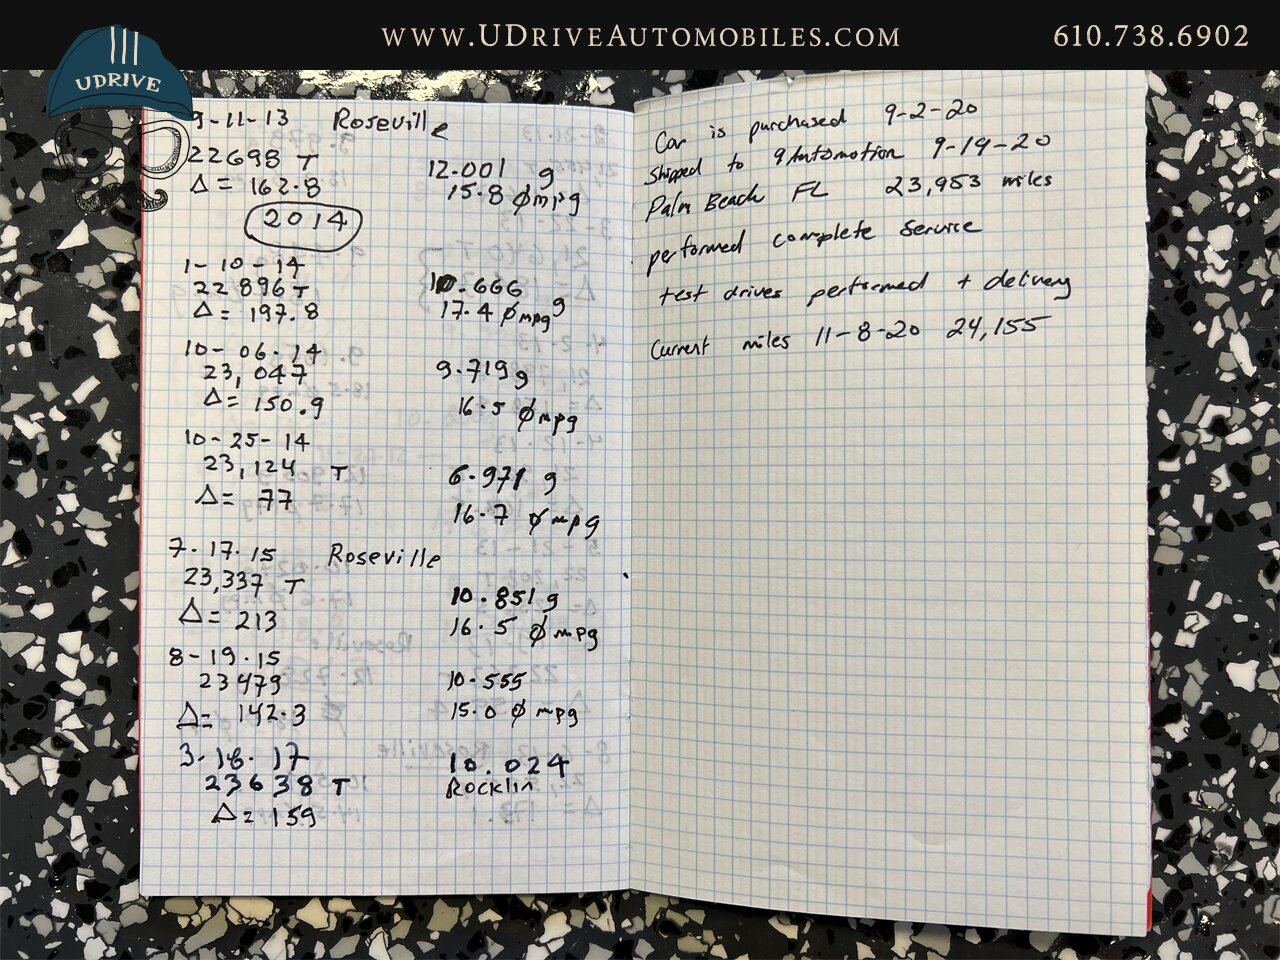 www.UDriveAutomobiles.com
610.738.6902
UDRIVE
9-11-13 Roseville
22698 T 12.001 g
Δ = 162.8 15.8 Ømpg
2014
1-10-14
22896 T 10.666 g
Δ = 197.8 17.4 Ømpg
10-06-14
23,047 9.719 g
Δ = 150.9 16.5 Ømpg
10-25-14
23,124 T 6.971 g
Δ = 77 16.7 Ømpg
7.17.15 Roseville
23,337 T 10.851 g
Δ = 213 16.5 Ømpg
8-19.15
23479 10.555
Δ= 142.3 15.0 Ømpg
3.18.17 10.024
23638 T Rocklin
Δ= 159
Car is purchased 9-2-20
Shipped to 9Automotion 9-19-20
Palm Beach FL 23,953 miles
performed complete service
test drives performed + delivery
Current miles 11-8-20 24,155